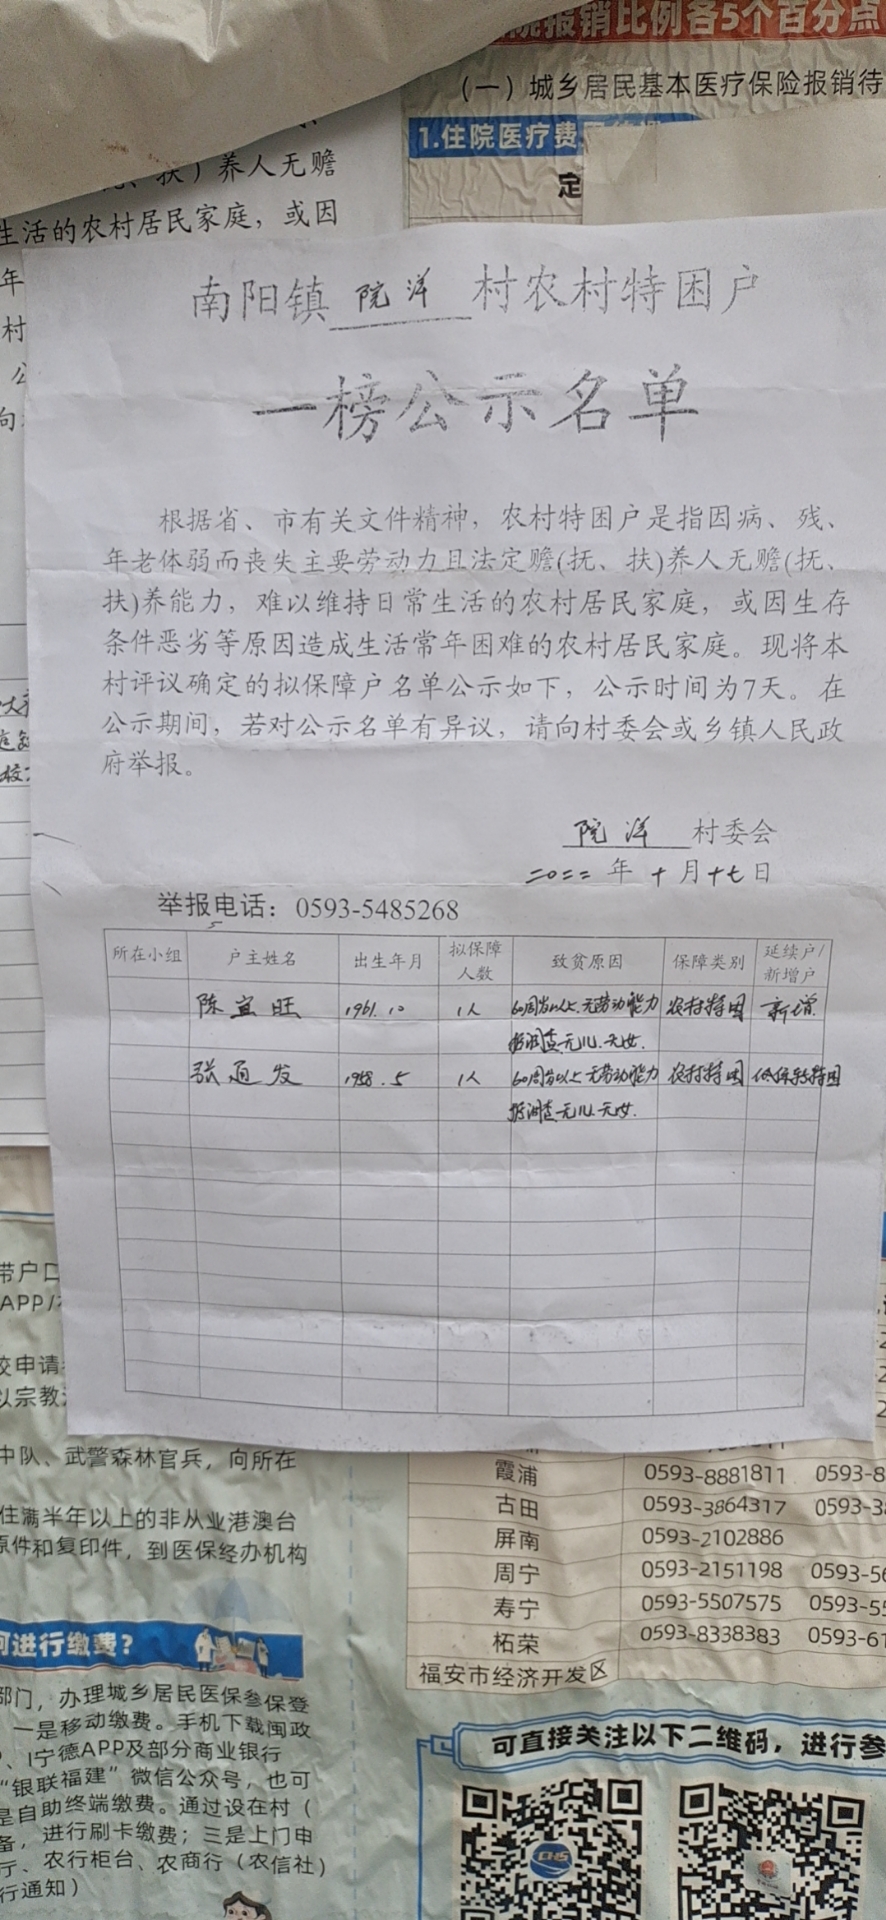 院报销比例各5个百分点
(一)城乡居民基本医疗保险报销待
1.住院医疗费
定
扶)养人无赡
生活的农村居民家庭，或因
年
村
公
向
南阳镇 院洋 村农村特困户
一榜公示名单
根据省、市有关文件精神，农村特困户是指因病、残、
年老体弱而丧失主要劳动力且法定赡(抚、扶)养人无赡(抚、
扶)养能力，难以维持日常生活的农村居民家庭，或因生存
条件恶劣等原因造成生活常年困难的农村居民家庭。现将本
村评议确定的拟保障户名单公示如下，公示时间为7天。在
公示期间，若对公示名单有异议，请向村委会或乡镇人民政
府举报。
院洋 村委会
二〇二二年十月十七日
举报电话：0593-5485268
所在小组 户主姓名 出生年月 拟保障人数 致贫原因 保障类别 延续户/新增户
陈宜旺 1961.10 1人 60周岁以上.无劳动能力 农村特困 新增
据调查.无儿.无女.
张 发 1958.5 1人 60周岁以上.无劳动能力 农村特困 低保转特困
据调查.无儿.无女.
带户口
APP/
校申请
以宗教
中队、武警森林官兵，向所在
住满半年以上的非从业港澳台
原件和复印件，到医保经办机构
何进行缴费？
部门，办理城乡居民医保参保登
一是移动缴费。手机下载闽政
、i宁德APP及部分商业银行
“银联福建”微信公众号，也可
是自助终端缴费。通过设在村（
备，进行刷卡缴费；三是上门申
厅、农行柜台、农商行（农信社）
行通知）
霞浦 0593-8881811 0593-8
古田 0593-3864317 0593-38
屏南 0593-2102886
周宁 0593-2151198 0593-56
寿宁 0593-5507575 0593-55
柘荣 0593-8338383 0593-61
福安市经济开发区
可直接关注以下二维码，进行参